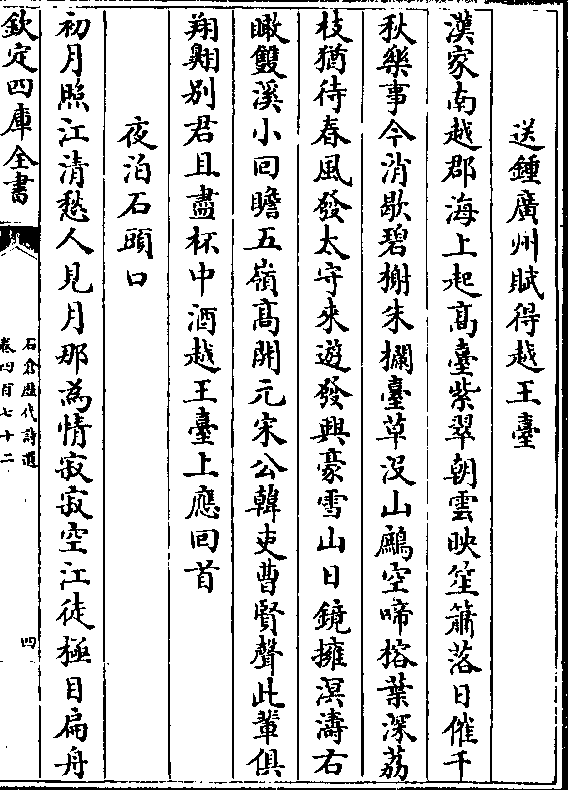 送鍾廣州賦得越王臺
漢家南越郡海上起高臺紫翠朝雲映笙簫落日催千
秋樂事今消歇碧榭朱欄臺草没山鷓空啼榕葉深荔
枝猶待春風發太守來遊發興豪雪山日鏡擁溟濤右
瞰雙溪小回瞻五嶺髙開元宋公韓吏曹賢聲此輩俱
翔翺别君且盡杯中酒越王臺上應回首
夜泊石頭口
初月照江清愁人見月那為情寂寂空江徒極目扁舟
欽定四庫全書
石倉歷代詩選
卷四百七十二
四